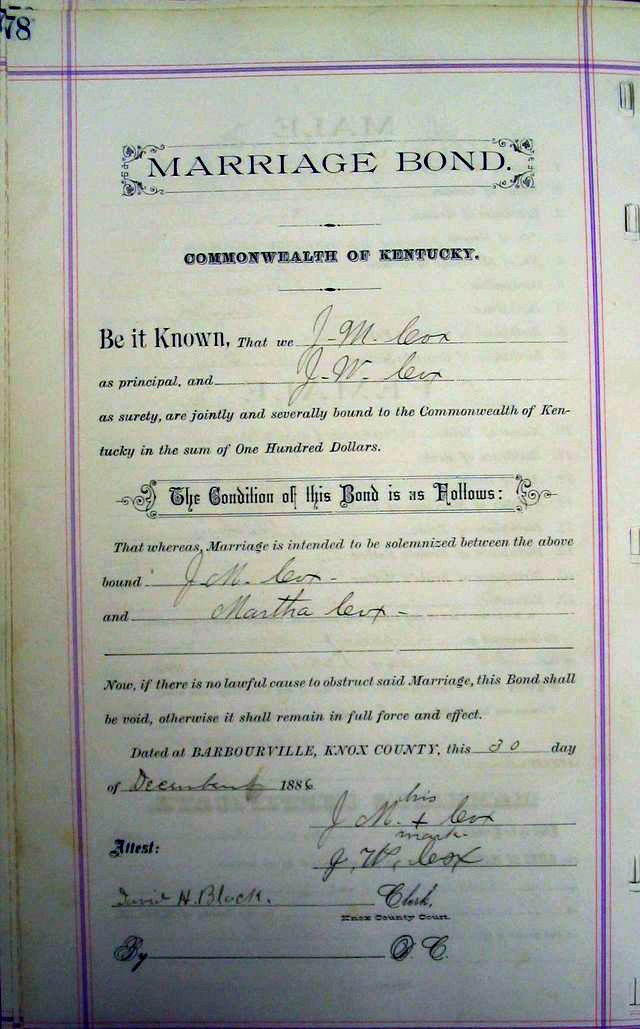 78
MARRIAGE BOND.
COMMONWEALTH OF KENTUCKY.
Be it Known, That we J-M. Cox
as principal, and J-W- Cox
as surety, are jointly and severally bound to the Commonwealth of Ken-
tucky in the sum of One Hundred Dollars.
The Condition of this Bond is as Follows:
That whereas, Marriage is intended to be solemnized between the above
bound J-M. Cox-
and Martha Cox-
Now, if there is no lawful cause to obstruct said Marriage, this Bond shall
be void, otherwise it shall remain in full force and effect.
Dated at BARBOURVILLE, KNOX COUNTY, this 30 day
of December 1886
his
J M. + Cox
mark.
Attest:
J. W. Cox
David H. Black. Clerk,
Knox County Court.
By D C.